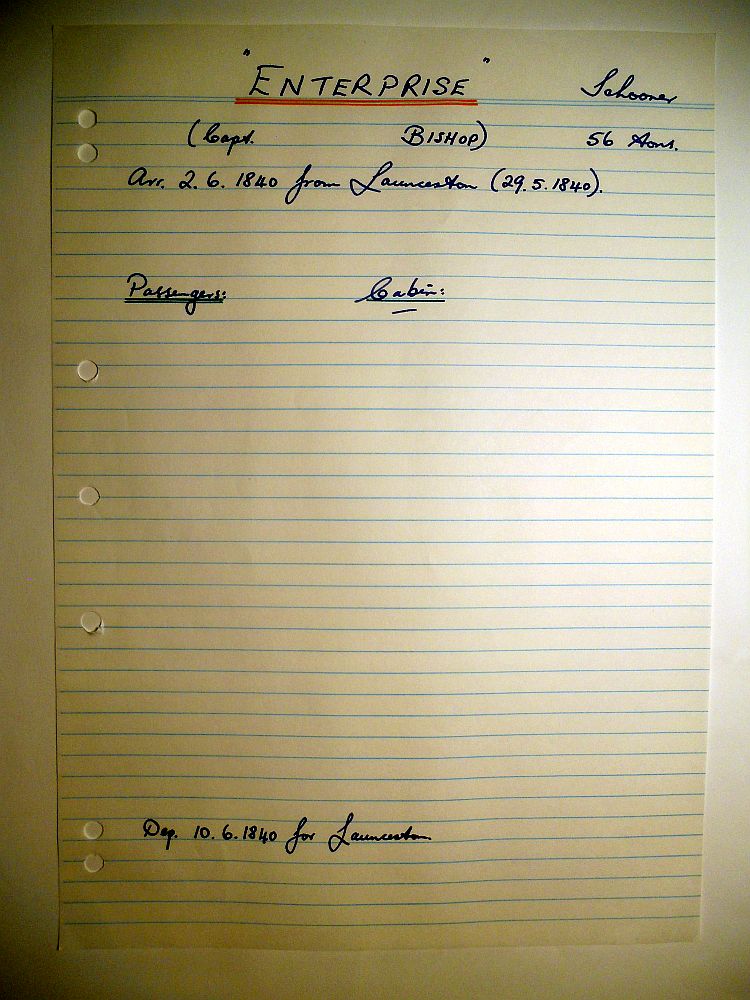 "ENTERPRISE" Schooner
(Capt. BISHOP) 56 tons.
Arr. 2.6.1840 from Launceston (29.5.1840).
Passengers: Cabin:
Dep. 10.6.1840 for Launceston